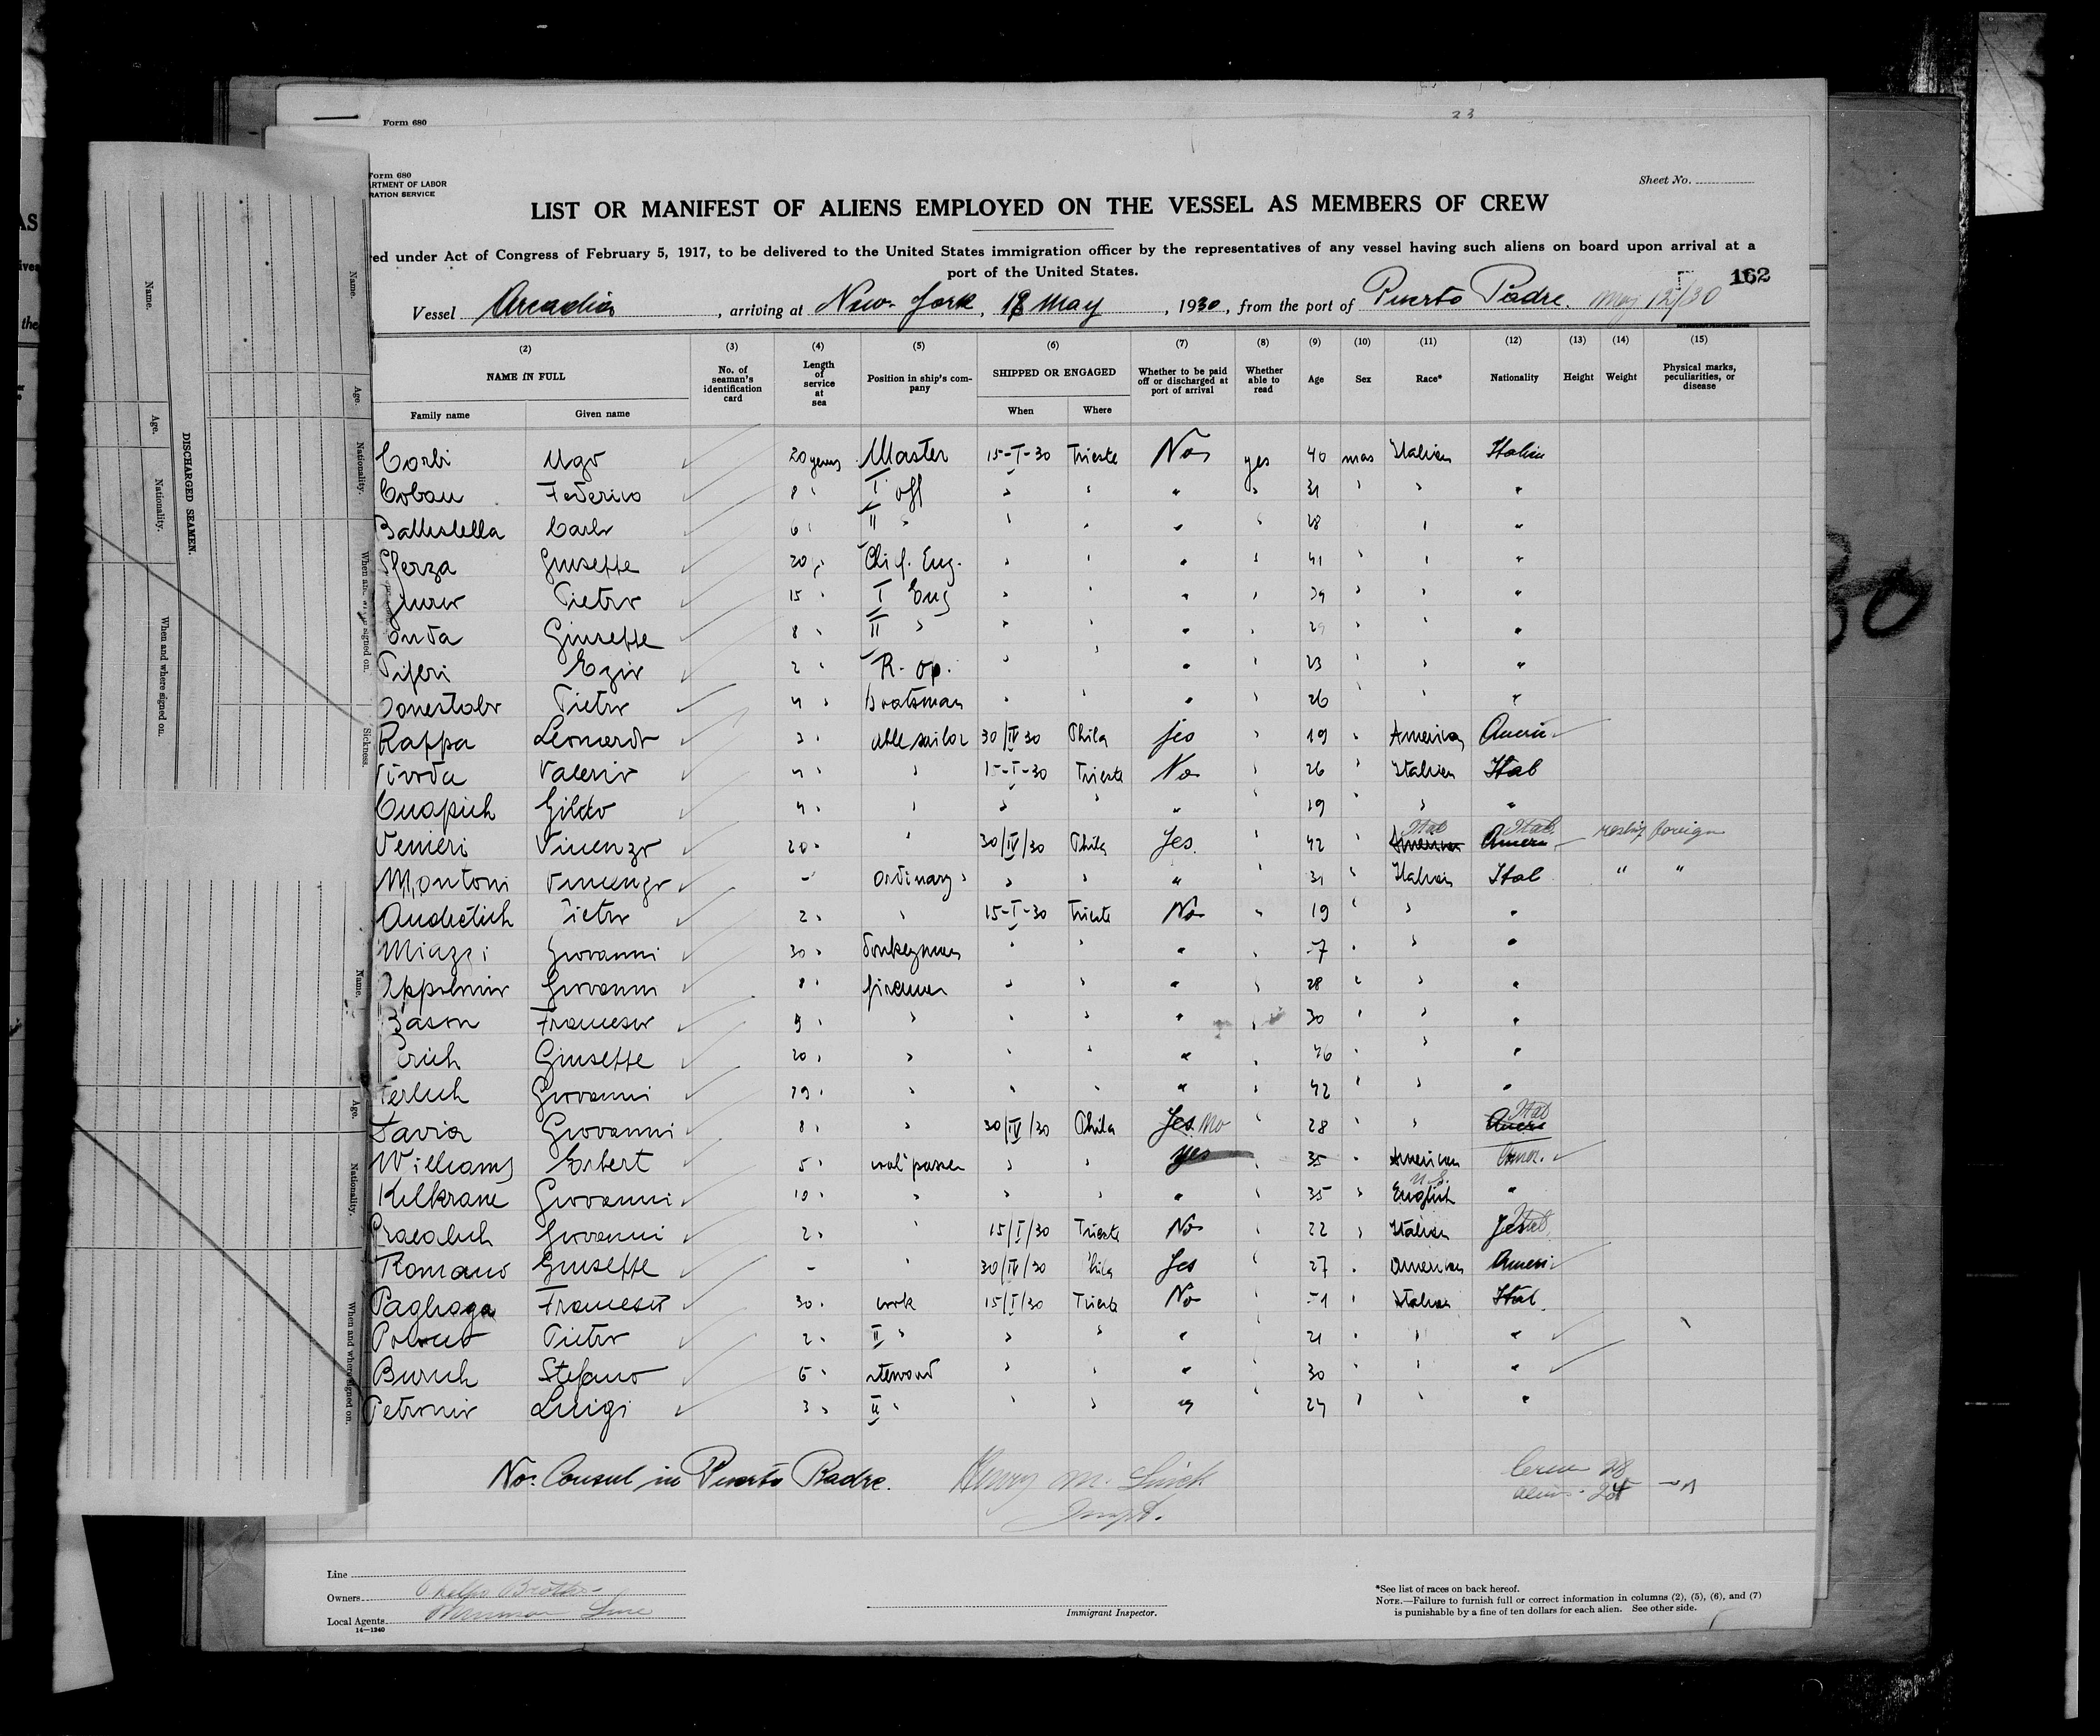 23
Form 680
Form 680
ARTMENT OF LABOR
RATION SERVICE
Sheet No.
LIST OR MANIFEST OF ALIENS EMPLOYED ON THE VESSEL AS MEMBERS OF CREW
ed under Act of Congress of February 5, 1917, to be delivered to the United States immigration officer by the representatives of any vessel having such aliens on board upon arrival at a
port of the United States.
162
Vessel Arcadia, arriving at New-York, 18 May, 1930, from the port of Puerto Padre. May 12/30
(2) (3) (4) (5) (6) (7) (8) (9) (10) (11) (12) (13) (14) (15)
NAME IN FULL No. of seaman's identification card Length of service at sea Position in ship's company SHIPPED OR ENGAGED Whether to be paid off or discharged at port of arrival Whether able to read Age Sex Race* Nationality Height Weight Physical marks, peculiarities, or disease
Family name Given name When Where
Corbi Ugo 20 years Master 15-I-30 Trieste No yes 40 mas Italian Italian
Coban Federico 8 " I off " " " " 31 " " "
Ballestella Carlo 6 " II " " " " " 28 " "
Sferza Giuseppe 20 " Chief. Eng. " " " " 41 " " "
Pietro 15 " I Eng " " " " 39 " " "
onda Giuseppe 8 " II " " " " " 29 " " "
Piferi Ezio 2 " R. op. " " " " 23 " " "
Pietro 4 " boatsman " " " " 26 " " "
Rappa Leonardo 3 " able sailor 30/IV 30 Phila Yes " 19 " American Ameri
Vivoda Valerio 4 " " 15-I-30 Trieste No " 26 " Italian Ital
Cnapich Gildo 4 " " " " " " 19 " " "
Venieri Vincenzo 20 " " 30/IV/30 Phila Yes. " 42 " American Ital Ameri Ital. reship foreign
Montoni Vincenzo - ordinary " " " " " 31 " Italian Ital " "
Andretich Pietro 2 " " 15-I-30 Trieste No " 19 " " "
Miazzi Giovanni 30 " donkeyman " " " " 57 " " "
Appolonio Giovanni 8 " fireman " " " " 28 " " "
Bason Francesco 9 " " " " " " 30 " " "
erich Giuseppe 20 " " " " " " 46 " " "
Terlich Giovanni 29 " " " " " " 42 " " "
Savia Giovanni 8 " " 30/IV/30 Phila Yes. No " 28 " " Ameri Ital
Williams Erbert 5 " coal passer " " yes " 35 " American Amer.
Kilkrane Giovanni 10 " " " " " " 35 " English U.S. "
Giovanni 2 " " 15/I/30 Trieste No " 22 " Italian Ital
Romano Giuseppe - " 30/IV/30 Phila Yes " 27 " American Ameri
Pagliaga Francesco 30 " cook 15/I/30 Trieste No " 51 " Italian Ital.
Pietro 2 " II " " " " " 21 " " "
Burich Stefano 6 " steward " " " " 30 " " "
Petronio Luigi 3 " II " " " " " 24 " " "
No. Consul in Puerto Padre.
Henry M.
Insp't.
Crew 28
aliens - 24
Line
Owners Phelps Brothers
Local Agents Line
14—1240
Immigrant Inspector.
*See list of races on back hereof.
NOTE.—Failure to furnish full or correct information in columns (2), (5), (6), and (7)
is punishable by a fine of ten dollars for each alien. See other side.
DISCHARGED SEAMEN.
Name.
Age.
Nationality.
When and where signed on.
Name.
Age.
Nationality.
Sickness
Name.
Age.
Nationality.
When and where signed on.
30